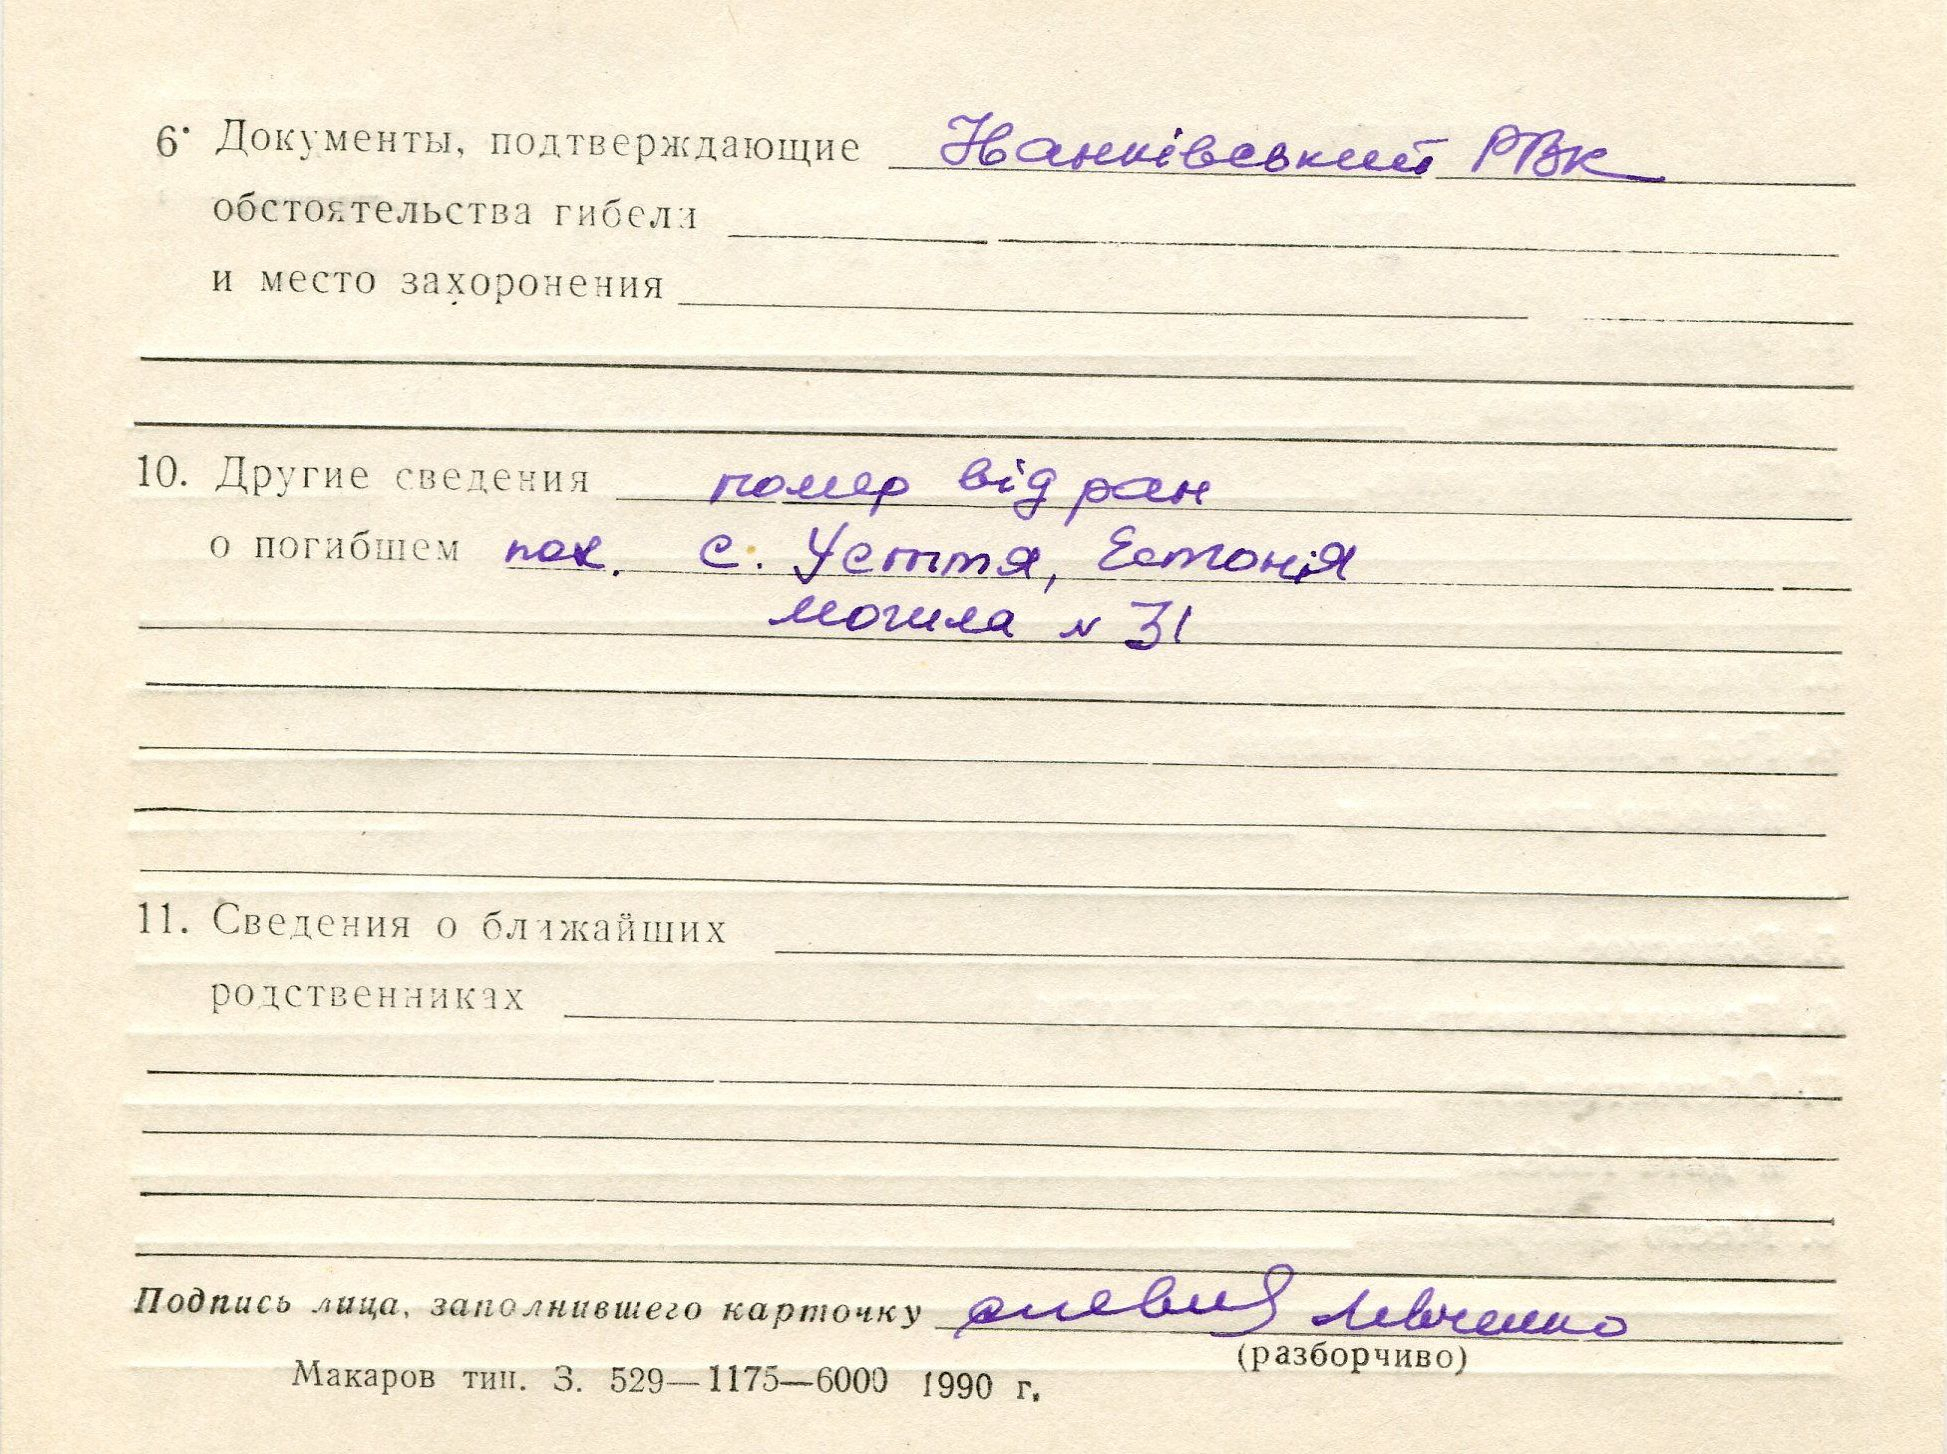 6. Документы, подтверждающие Іванківський РВК
обстоятельства гибели
и место захоронения
10. Другие сведения помер від ран
о погибшем пох. с. Устья, Естонія
могила N 31
11. Сведения о ближайших
родственниках
Подпись лица, заполнившего карточку Левченко
(разборчиво)
Макаров тип. З. 529—1175—6000 1990 г.